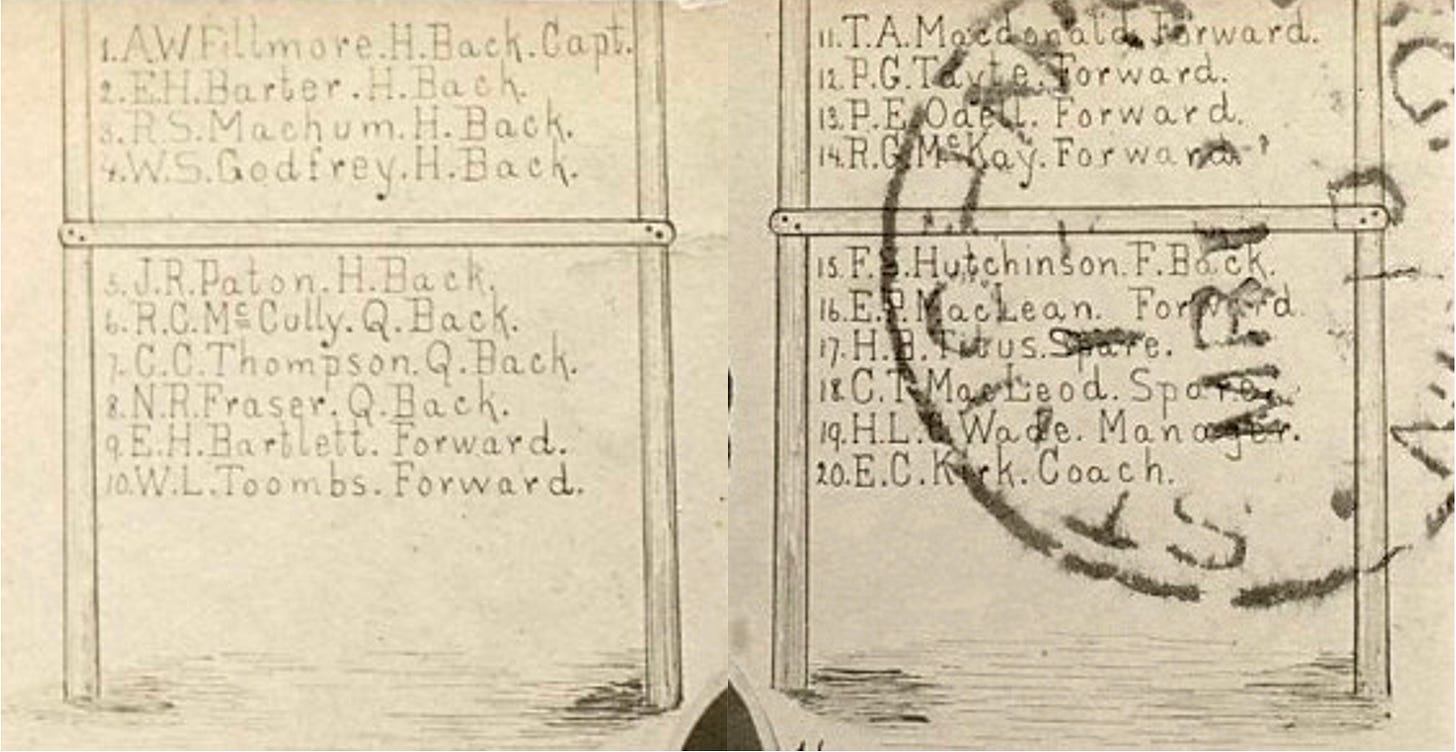 1. A.W.Fillmore. H. Back. Capt.
2. E.H. Barter. H. Back.
3. R.S. Machum. H. Back.
4. W.S. Godfrey. H. Back.
5. J.R. Paton. H. Back.
6. R.C. McCully. Q. Back.
7. C.C. Thompson. Q. Back.
8. N.R. Fraser. Q. Back.
9. E.H. Bartlett. Forward.
10. W.L. Toombs. Forward.
11. T.A. Macdonald. Forward.
12. P.G. Tayte. Forward.
13. P.E. Odell. Forward.
14. R.G. McKay. Forward.
15. Hutchinson. F. Back.
16. E.P. MacLean. Forward.
17. H.B. Titus. Spare.
18. C.T. MacLeod. Spare.
19. Wade. Manager.
20. E.C. Kirk. Coach.